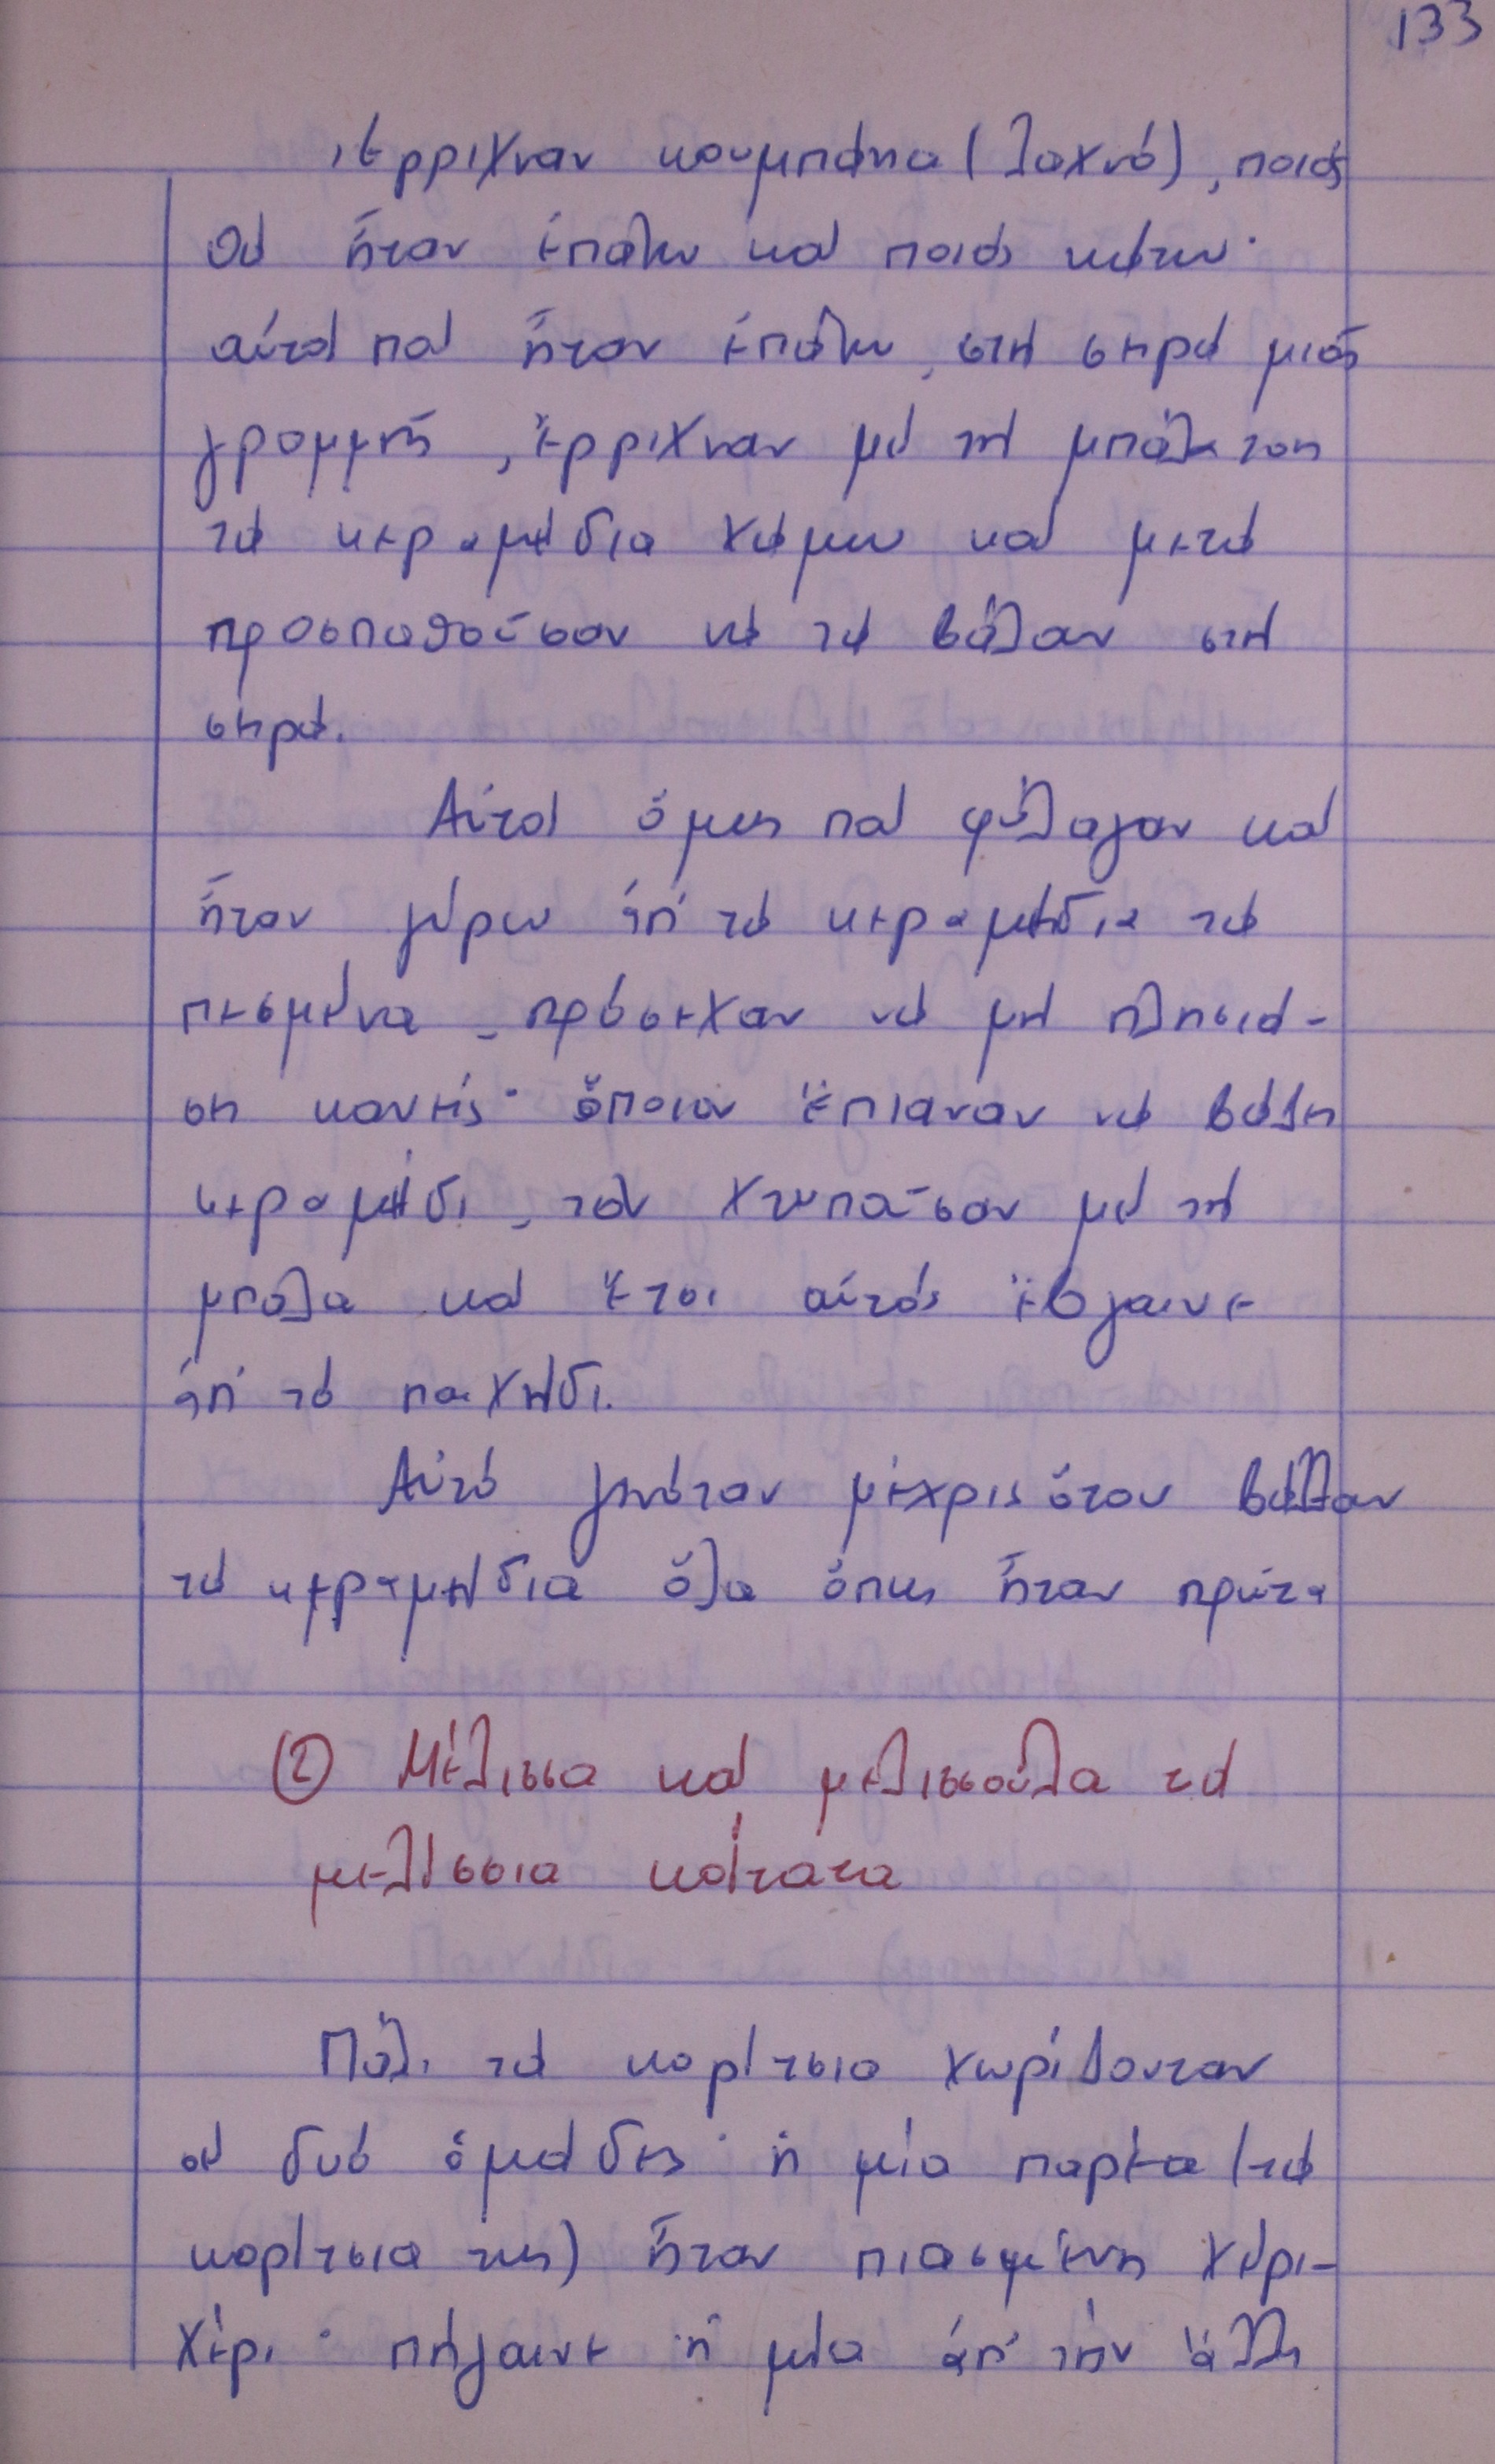 133
ἔρριχναν κουμπάνια (λαχνό), ποιός
θά ἦταν ἐπάνω καί ποιός κάτω·
αὐτοί πού ἦταν ἐπάνω, στή σειρά μιᾶς
γραμμῆς, ἔρριχναν μέ τή μπάλα τους
τά κεραμείδια χάμω καί μετά
προσπαθοῦσαν νά τά βάλουν στή
σειρά.
Αὐτοί ὅμως πού φύλαγαν καί
ἦταν γύρω ἀπ' τά κεραμείδια τά
πεσμένα, πρόσεχαν νά μή πλησιά-
ση κανείς· ὅποιον ἔπιαναν νά βάλη
κεραμείδι, τόν χτυποῦσαν μέ τή
μπάλα καί ἔτσι αὐτός ἔβγαινε
ἀπ' τό παιχνίδι.
Αὐτό γινόταν μέχρις ὅτου βάλουν
τά κεραμείδια ὅλα ὅπως ἦταν πρῶτα
② Μέλισσα καί μελισσούλα τά
μελίσσια κάτσατα
Πάλι τά κορίτσια χωρίζονταν
σέ δυό ὁμάδες· ἡ μία παρέα (τά
κορίτσια της) ἦταν πιασμένη χέρι-
χέρι· πήγαινε ἡ μία ἀπ' τήν ἄλλη